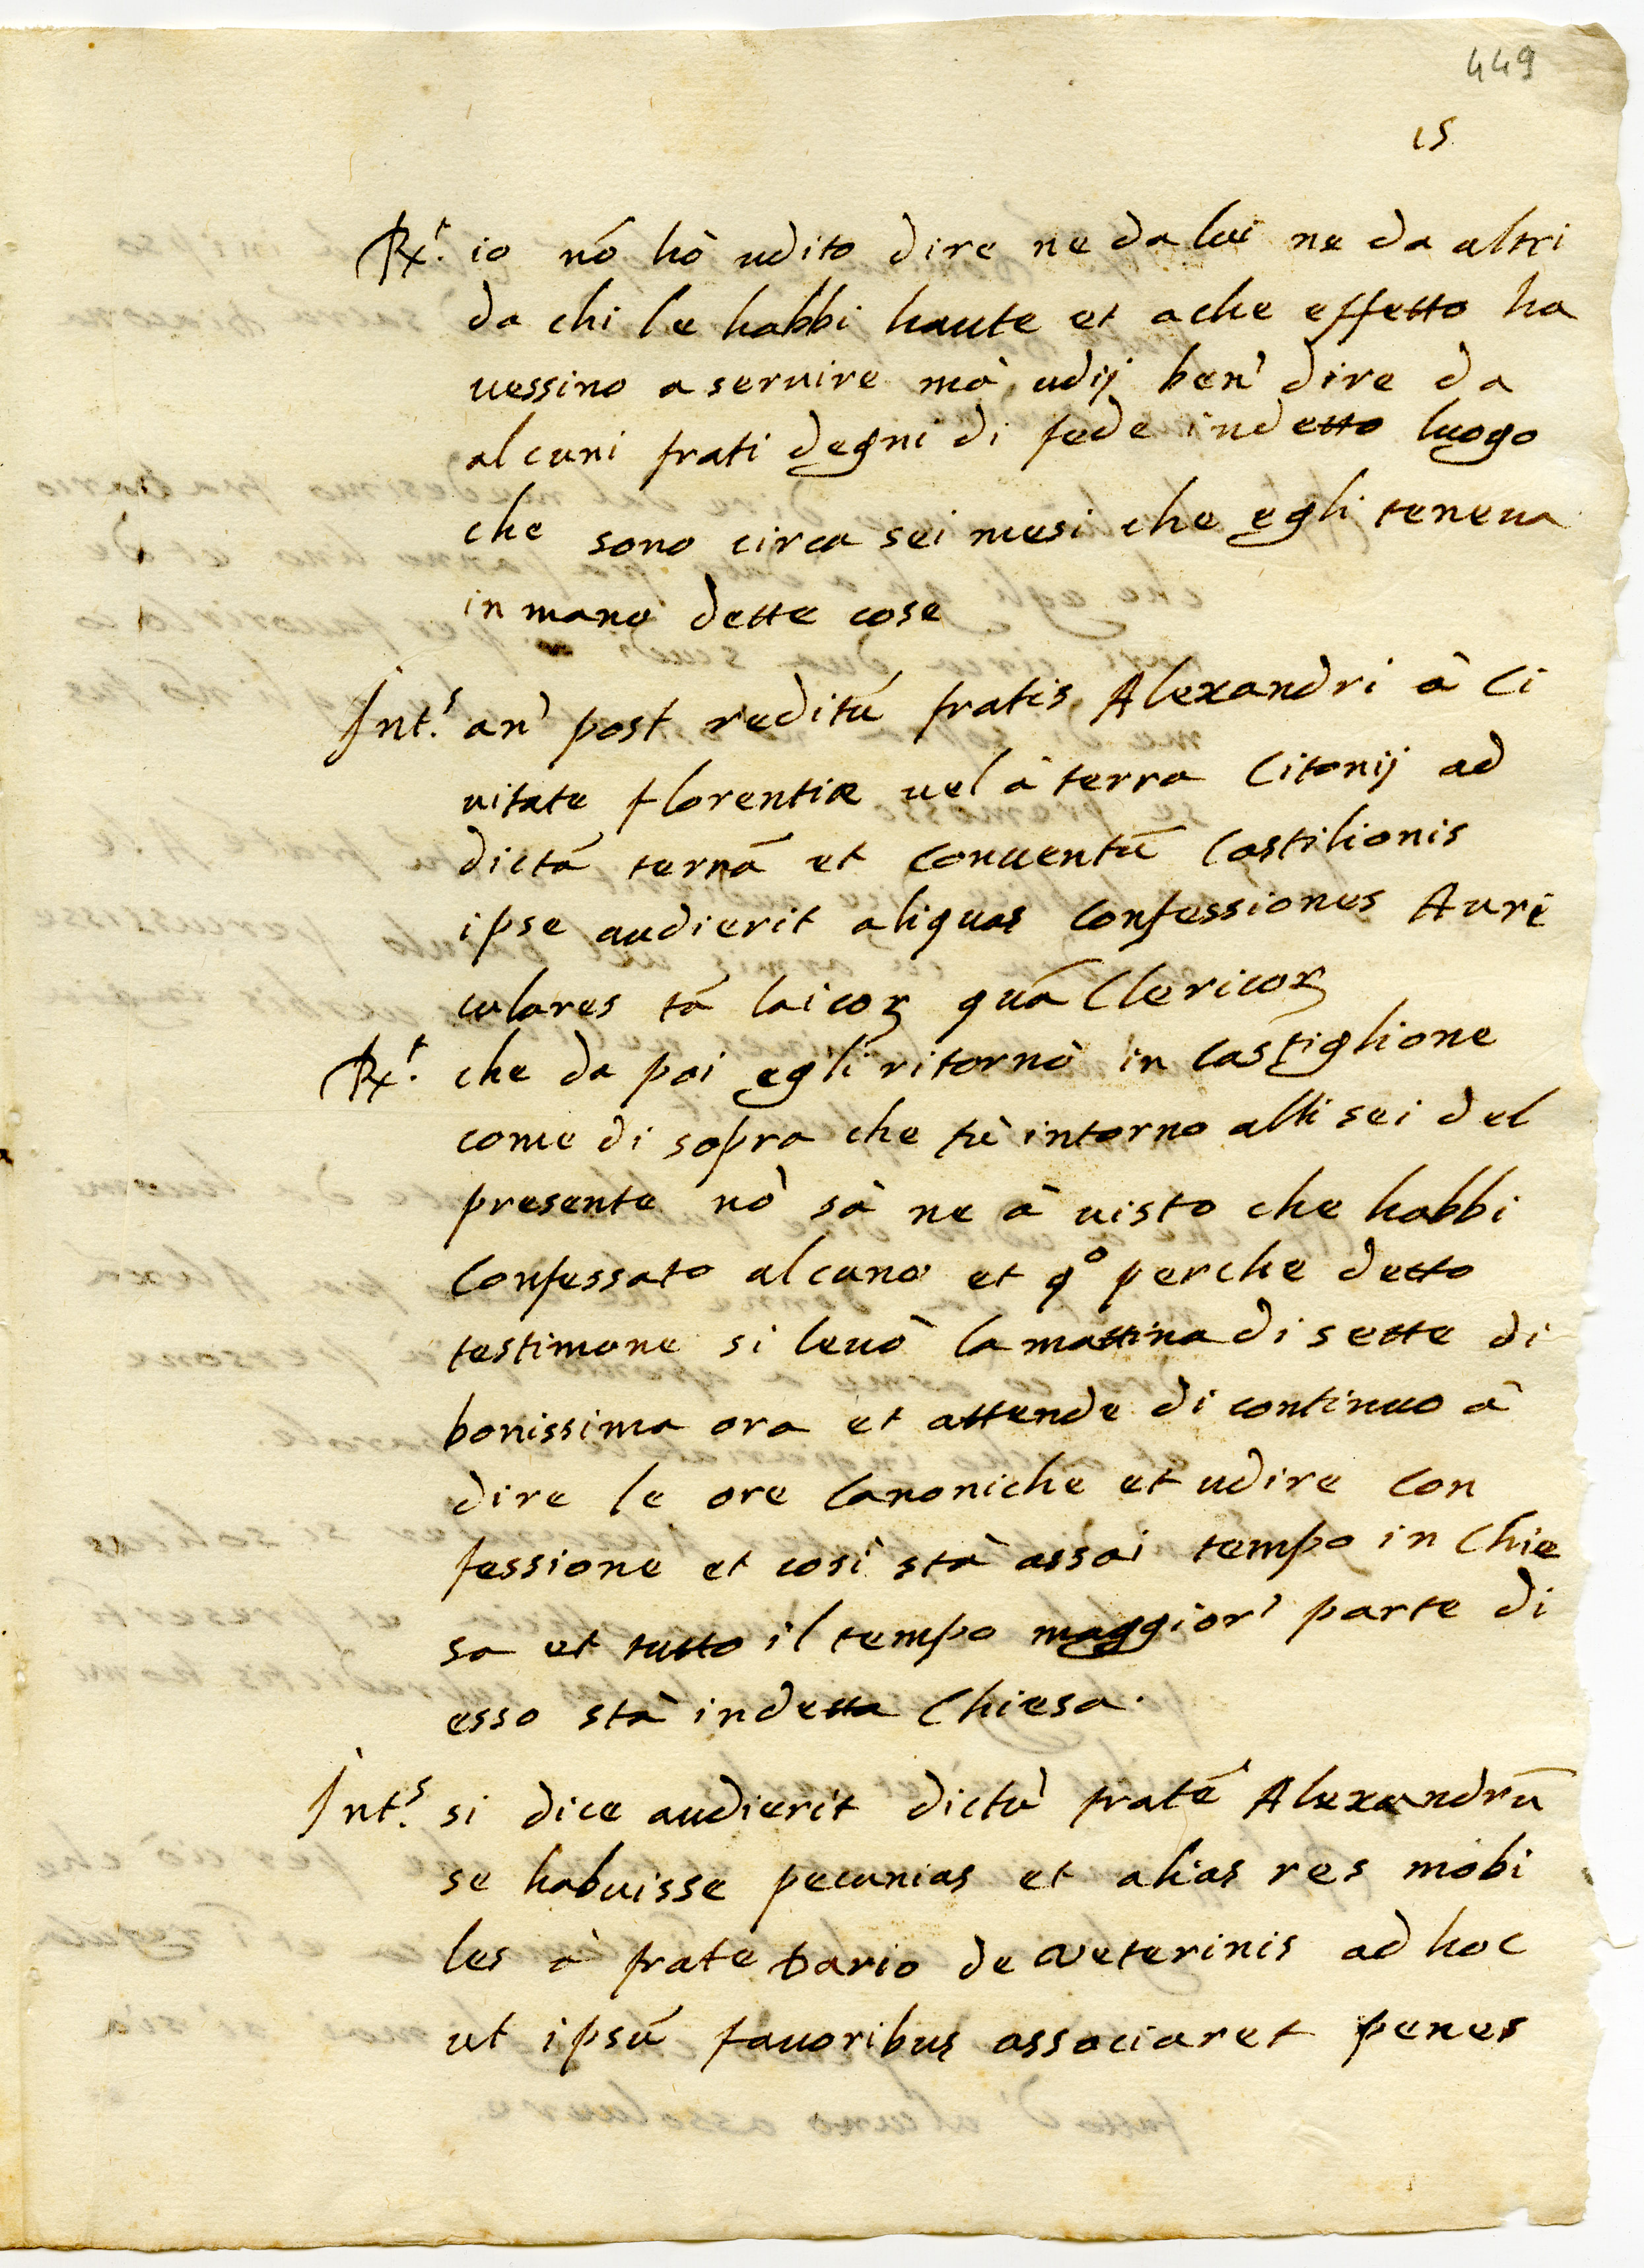 449
15
Rx.t io nō hò udito dire ne da lui ne da altri
da chi le habbi haute et ache effetto ha
uessino a seruire mà udij ben' dire da
alcuni frati degni di fede indetto luogo
che sono circa sei mesi che egli teneua
in mano dette cose
Int.s an' post reditū fratis Alexandri à Ci
uitate florentiæ uel à terra Citonij ad
dictā terrā et conuentū Castilionis
ipse audierit aliquas confessiones Auri
culares tā laicoꝝ quā Clericoꝝ
Rx.t che da poi egli ritornò in Castiglione
come di sopra che fù intorno alli sei del
presente nò sà ne à uisto che habbi
confessato alcuno et qº perche detto
testimone si leuò la mattina di sette di
bonissima ora et attende di continuo à
dire le ore Canoniche et udire con
fessione et cosi stà assai tempo in Chie
sa et tutto il tempo maggior' parte di
esso stà indetta Chiesa.
Int.s si dice audierit dictū fratē Alexandrū
se habuisse pecunias et alias res mobi
les à frate Dario de Veterinis ad hoc
ut ipsū fauoribus associaret penes